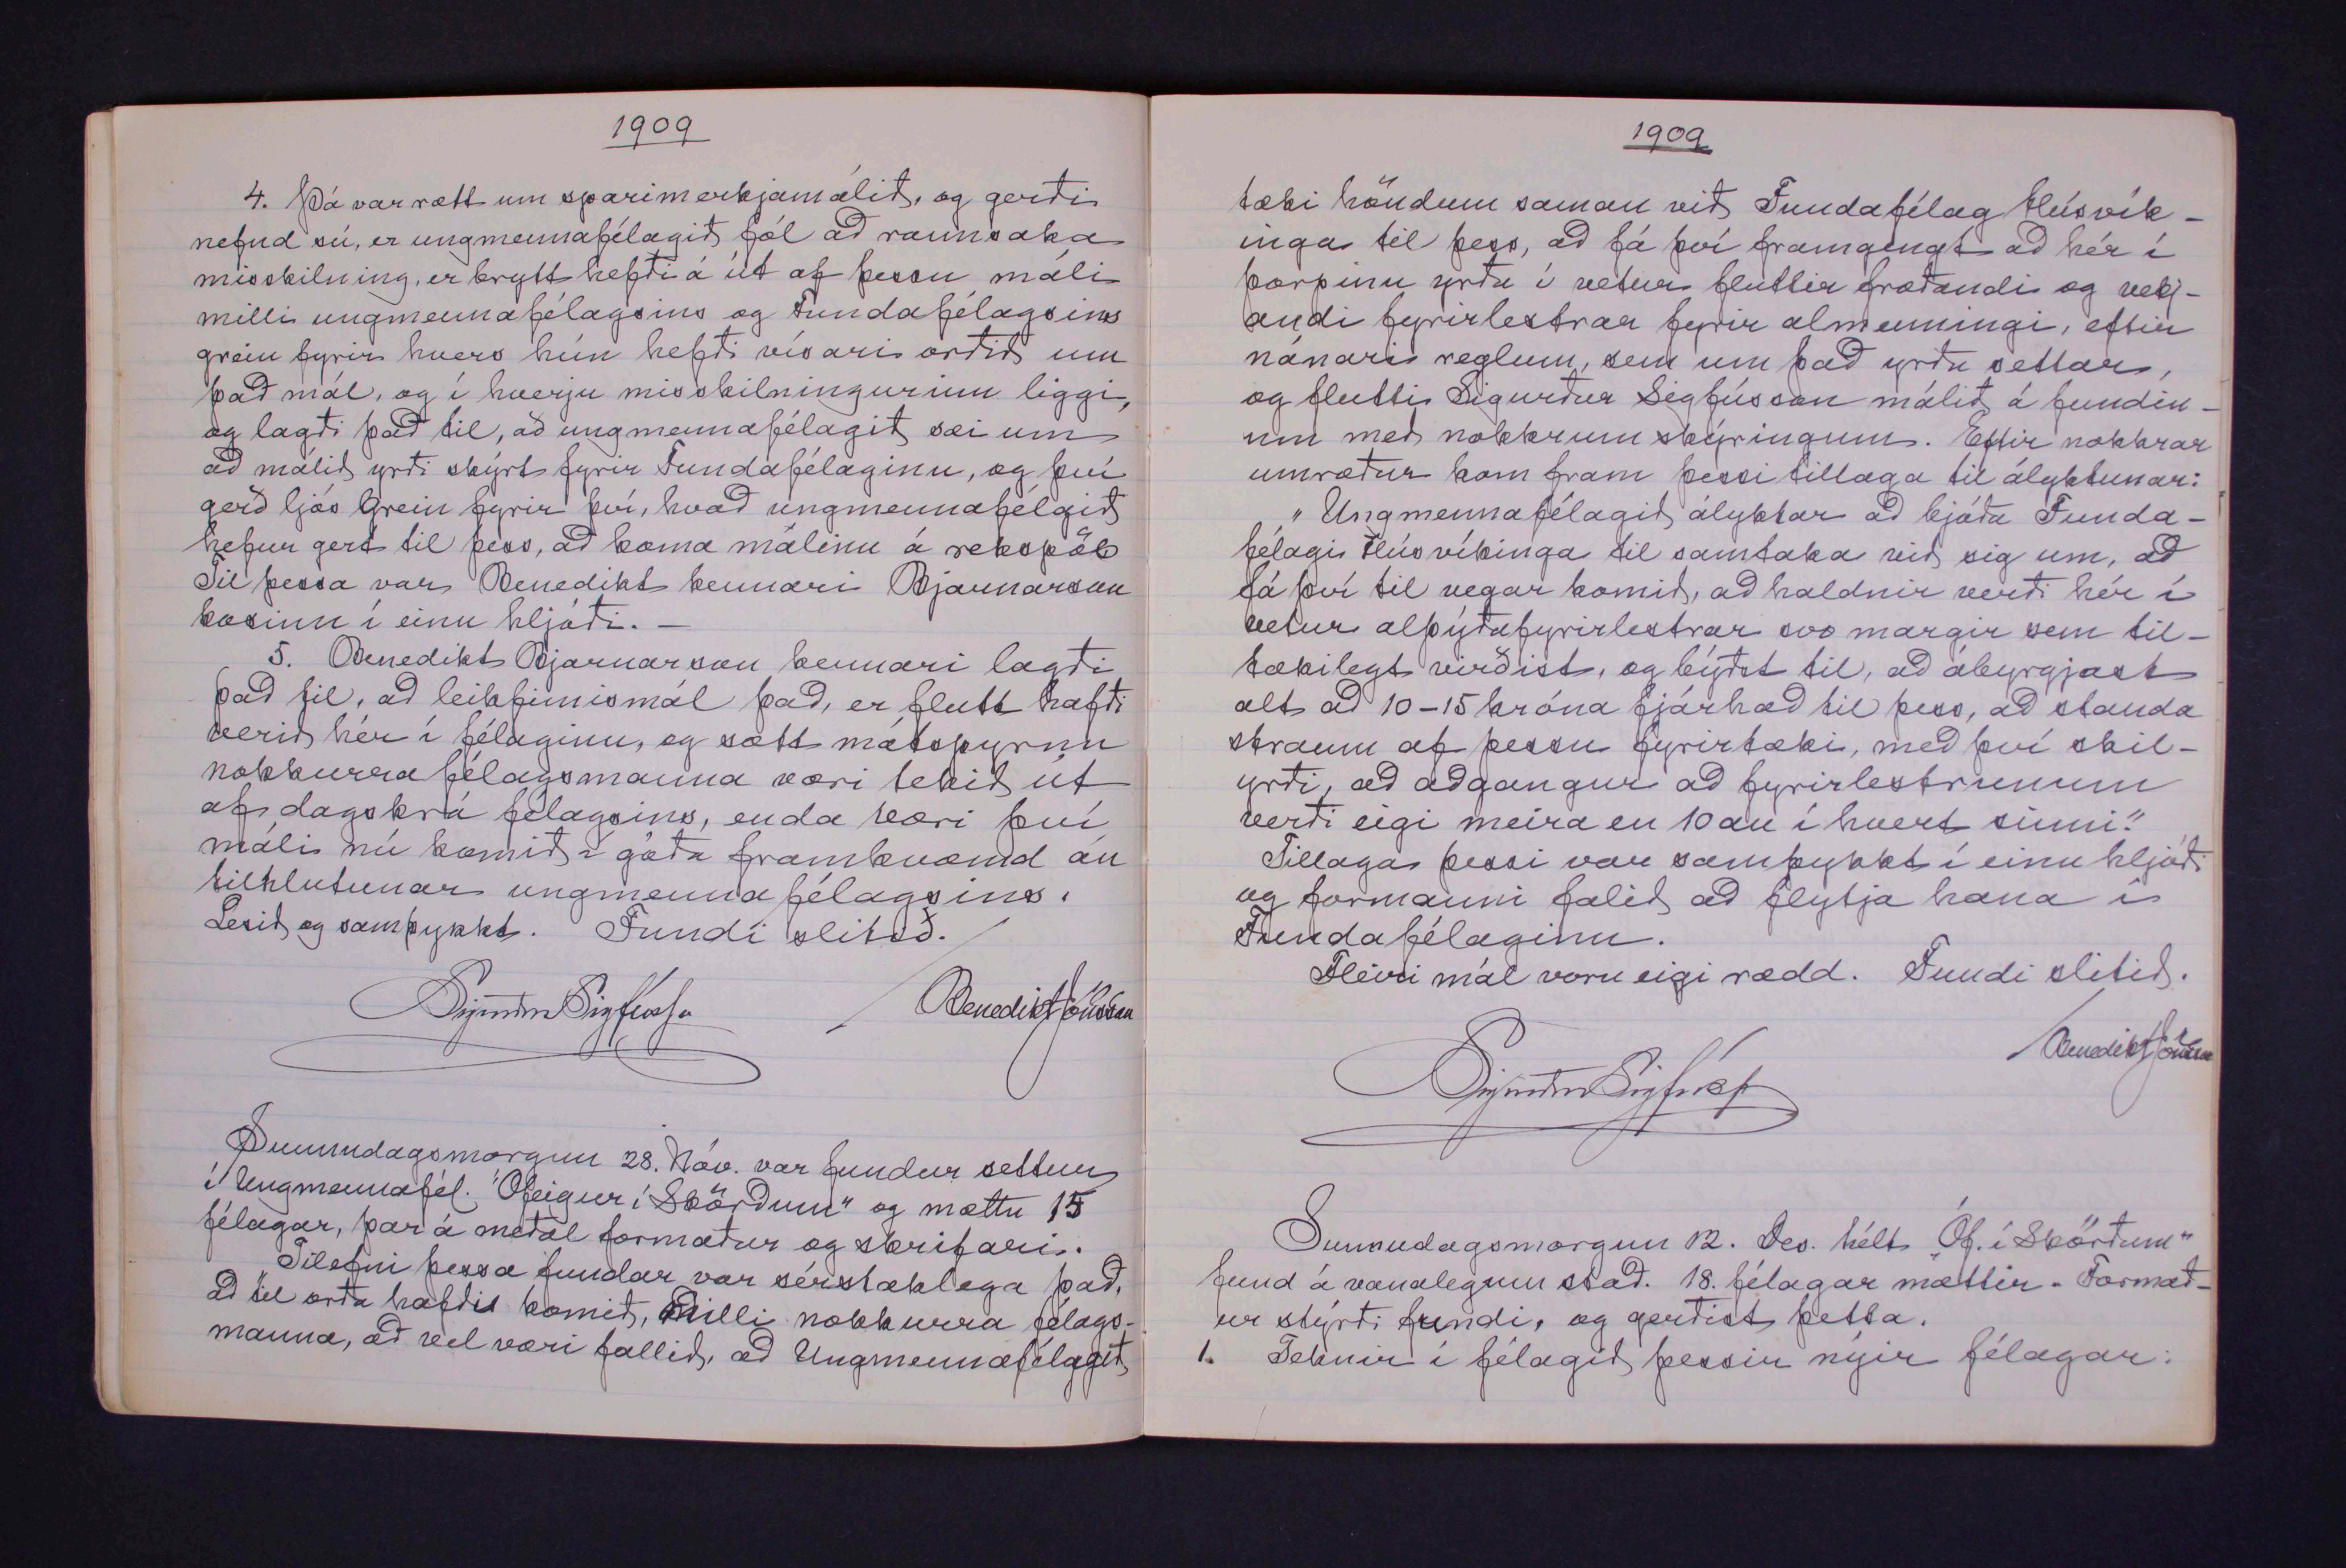 1909
4. Þá var rætt um sparimerkjamálið, og gerði
nefnd sú, er ungmennafélagið fól að rannsaka
misskilning, er brytt hefði á út af þessu máli
milli ungmennafélagsins og Fundafélagsins
grein fyrir hvers hún hefði vísari orðið um
það mál, og í hverju misskilningurinn liggi,
og lagði það til, að ungmennafélagið sæi um
að málið yrði skýrt fyrir Fundafélaginu, og því
gerð ljós grein fyrir því, hvað ungmennafélgið
hefur gert til þess, að koma málinu á rekspöl
Til þessa var Benedikt kennari Bjarnarson
kosinn í einu hljóði. —
5. Benedikt Bjarnarson kennari lagði
það til, að leikfimismál það, er flutt hafði
verið hér í félaginu, og sætt mótspyrnu
nokkurra félagsmanna væri tekið út
af dagskrá félagsins, enda væri því
máli nú komið í góða framkvæmd án
tilhlutunar ungmennafélagsins.
Lesið og samþykkt. Fundi slitið.
Sigurður Sigfússon Benedikt Jónsson
Sunnudagsmorgun 28. Nóv. var fundur settur
í Ungmennafél. "Ófeigur í Skörðum" og mættu 15
félagar, þar á meðal formaður og skrifari.
Tilefni þessa fundar var sérstaklega það,
að til orða hafði komið, milli nokkurra félags-
manna, að vel væri fallið, að Ungmennafélagið
1909
tæki höndum saman við Fundafélag Húsvík-
inga til þess, að fá því framgengt að hér í
þorpinu yrðu í vetur fluttir fræðandi og vekj-
andi fyrirlestrar fyrir almenningi, eftir
nánari reglum, sem um það yrðu settar,
og flutti Sigurður Sigfússon málið á fundin-
um með nokkrum skýringum. Eftir nokkrar
umræður kom fram þessi tillaga til ályktunar:
"Ungmennafélagið ályktar að bjóða Funda-
félagi Húsvíkinga til samtaka við sig um, að
fá því til vegar komið, að haldnir verði hér í
vetur alþýðufyrirlestrar svo margir sem til-
tækilegt virðist, og býðst til, að ábyrgjast
alt að 10-15 króna fjárhæð til þess, að standa
straum af þessu fyrirtæki, með því skil-
yrði, að aðgangur að fyrirlestrunum
verði eigi meira en 10 au í hvert sinni."
Tillaga þessi var samþykkt í einu hljóði
og formanni falið að flytja hana í
Fundafélaginu.
Fleiri mál voru eigi rædd. Fundi slitið.
Benedikt Jónsson
Sigurður Sigfúss
Sunnudagsmorgun 12. Des. hélt "Óf. í Skörðum"
fund á vanalegum stað. 18. félagar mættir. Formað-
ur stýrði fundi, og gerðist þetta.
1. Teknir í félagið þessir nýir félagar: